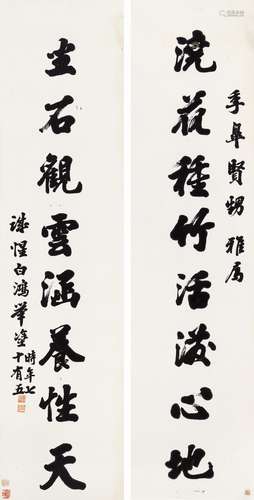 季皐賢甥雅屬
澆花種竹活潑心地
坐石觀雲涵養性天
譚惺白鴻筆塗
時年七
十有五